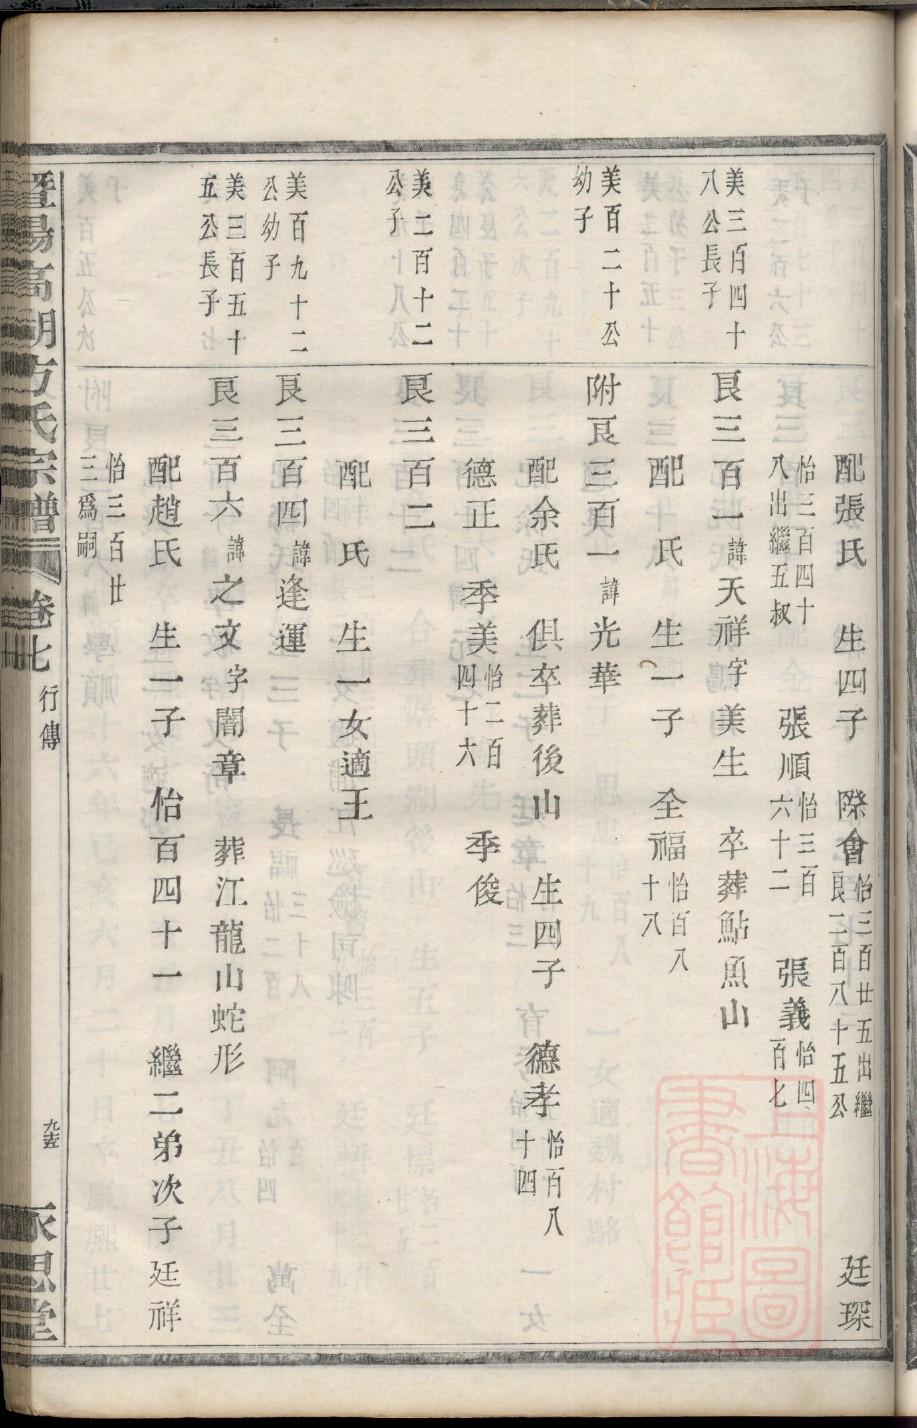 配張氏　生四子　際會怡三百廿五出繼良二百八十五公　廷琛
怡三百四十八出繼五叔　張順怡三百六十二　張義怡四百七
美三百四十八公長子　良三百一諱天祥字美生　卒葬鮎魚山
配　氏　生一子　全福怡百八十八
美百二十公幼子　附良三百一諱光華
配余氏　俱卒葬後山　生四子　德孝怡百八十四
德正　季美怡二百四十六　季俊
美二百十二公子　良三百二
配　氏　生一女適王
美百九十二公幼子　良三百四諱逢運
美三百五十五公長子　良三百六諱之文字闇章　葬江龍山蛇形
配趙氏　生一子　怡百四十一　繼二弟次子廷祥
怡三百廿三爲嗣
暨陽高湖方氏宗譜　卷七　行傳　永思堂
上海圖書館藏